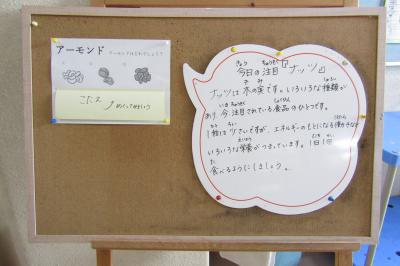 アーモンド アーモンドはどれでしょう？
こたえ
めくってねという
今日の注目『ナッツ』
ナッツは木の実です。いろいろな種類が
あり、今注目されている食品のひとつです。
1粒は小さいですが、エネルギーのもとになる働きなど
いろいろな栄養がつまっています。1日1回
食べるようにしましょう。